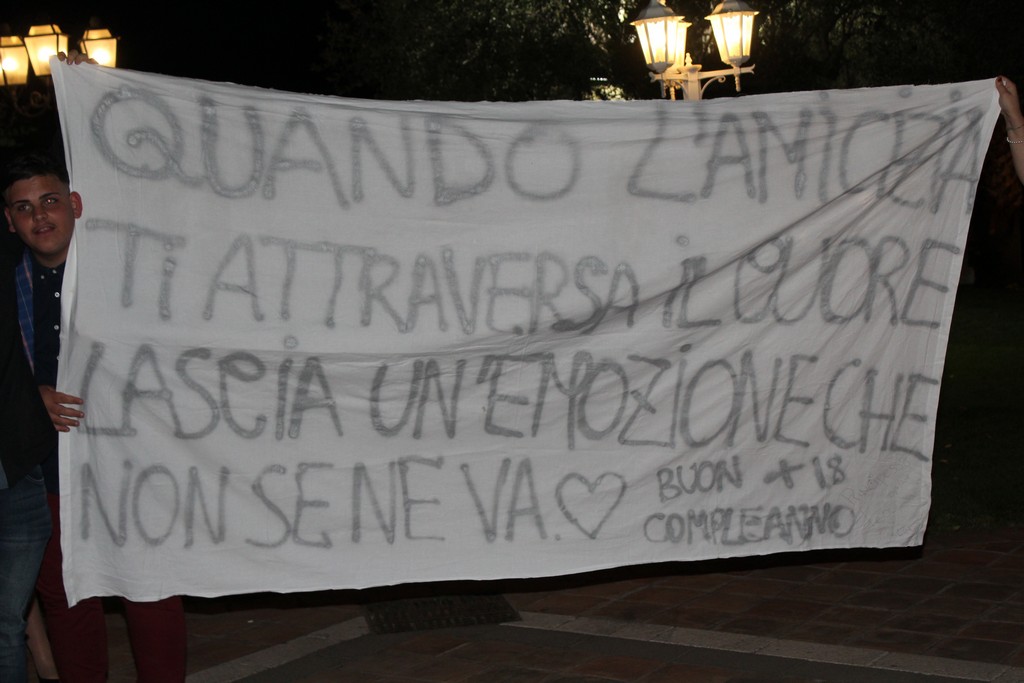 QUANDO L'AMICIZIA
Ti ATTRAVERSA iL CUORE
LASCiA UN'EMOZiONE CHE
NON SE NE VA. ♡
BUON + 18
COMPLEANNO